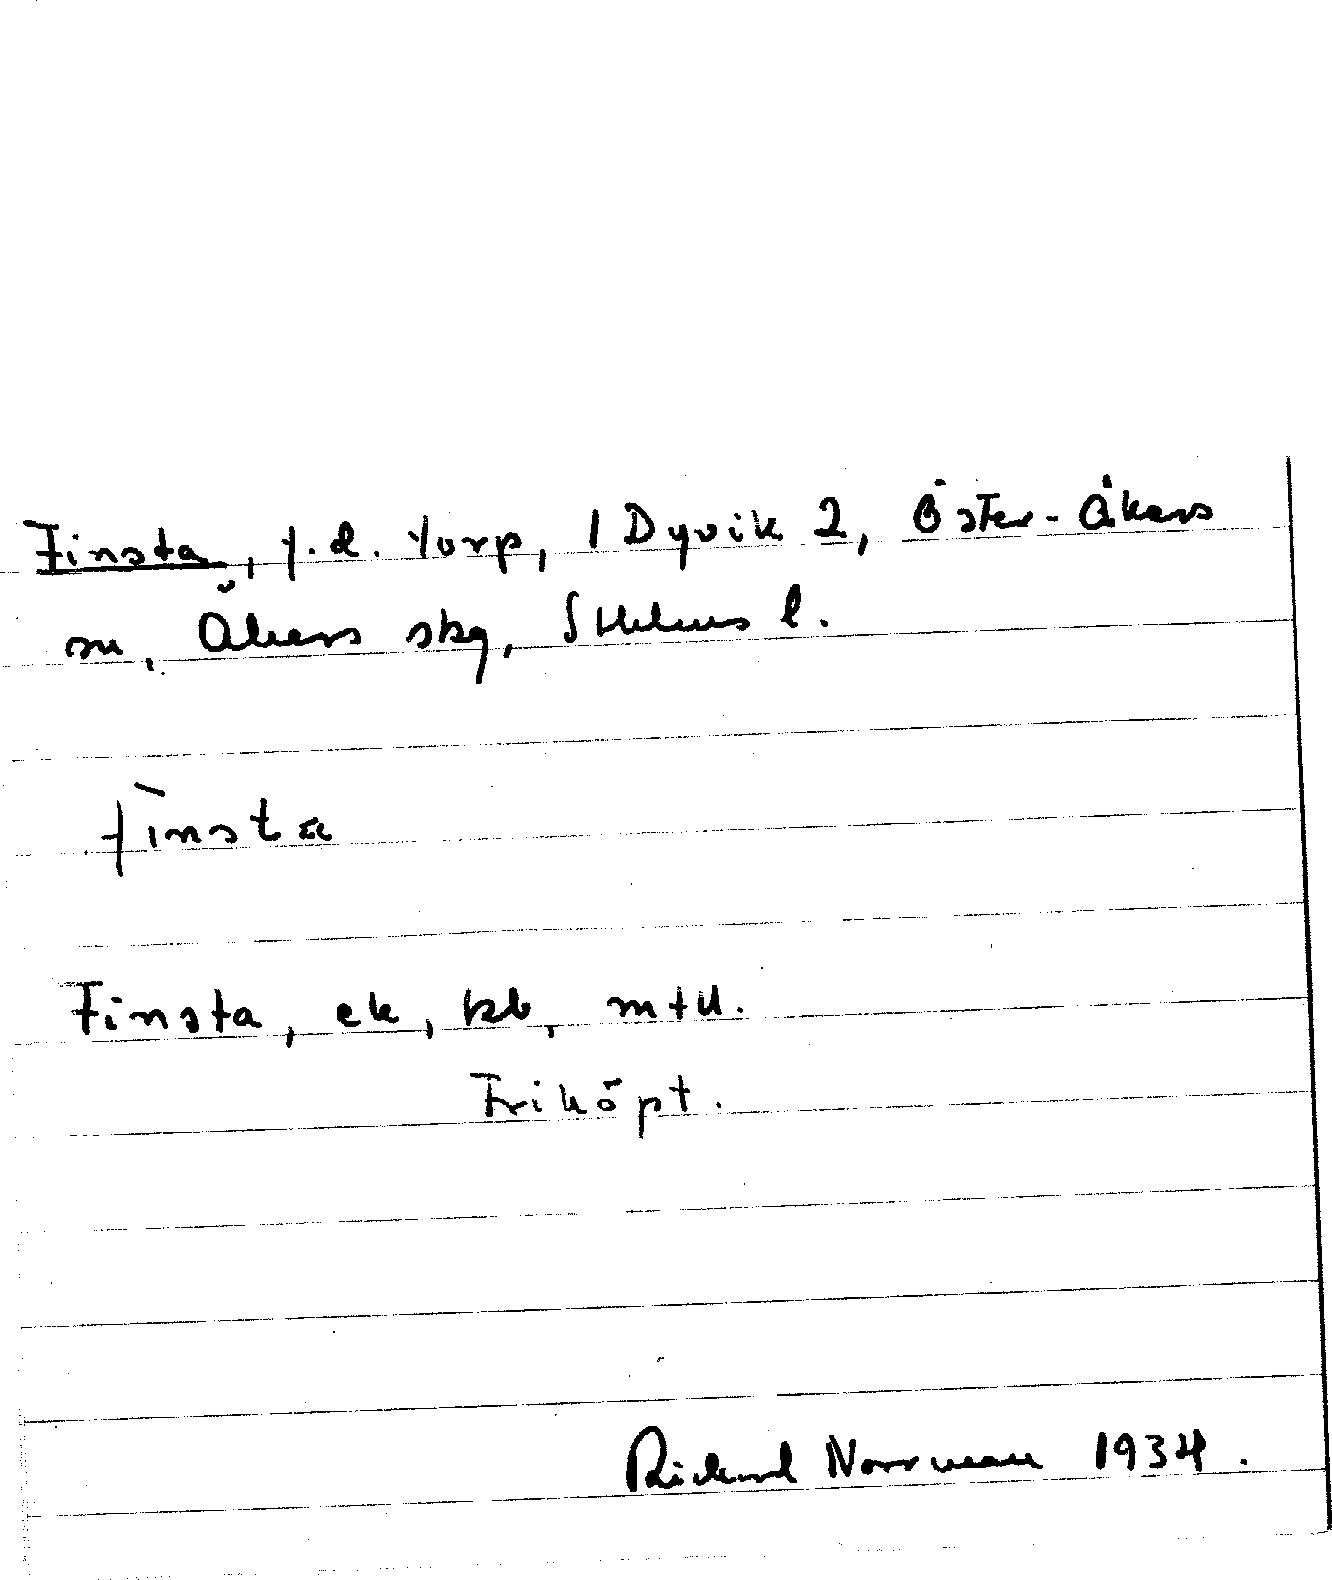 Finsta, f.d. torp, 1 Dyvik 2, Öster-Åkers
sn, Åkers skg, Sthlms l.
fìnsta
Finsta, ek, kb, mtl.
Friköpt.
Rickard Norrman 1934.